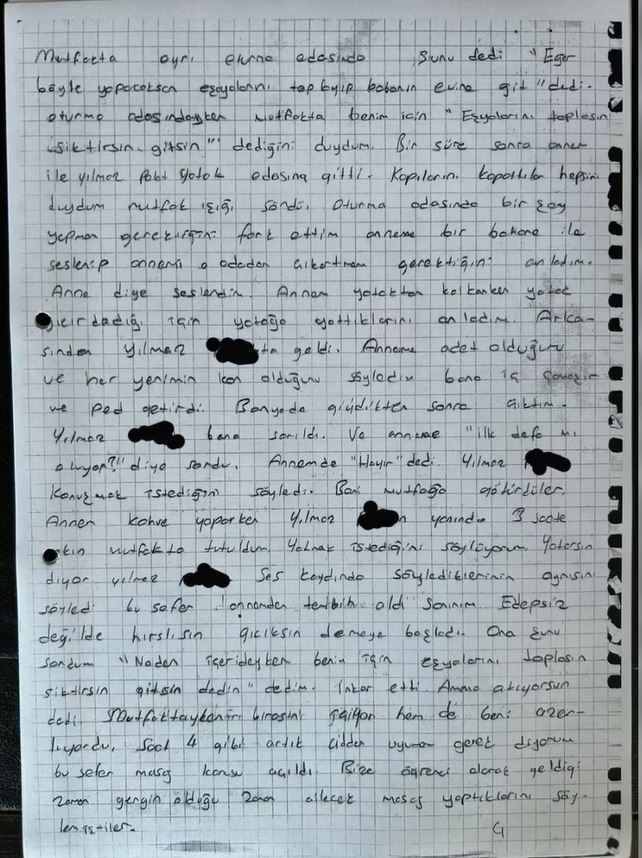 Mutfakta ayrı oturma odasında, şunu dedi "Eğer
böyle yapacaksan eşyalarını toplayıp babanın evine git" dedi.
oturma odasındayken mutfakta benim için "Eşyalarını toplasın
siktirsin gitsin" dediğini duydum. Bir süre sonra annem
ile yılmaz yatak odasına gitti. Kapılarını kapattılar hepsini
duydum mutfak ışığı söndü. Oturma odasında bir şey
yapmam gerektiğini fark ettim anneme bir bahane ile
seslenip annemi o odadan çıkartmam gerektiğini anladım.
Anne diye seslendim. Annem yataktan kalkarken yatak
gıcırdadığı için yatağa yattıklarını anladım. Arka-
sından Yılmaz ta geldi. Anneme adet olduğumu
ve her yerimin kan olduğunu söyledim bana iç çamaşır
ve ped getirdi. Banyoda giyidikten sonra çıktım.
Yılmaz bana sarıldı. Ve anneme "ilk defa mı
oluyor?" diye sordu. Annemde "Hayır" dedi. Yılmaz
konuşmak istediğini söyledi. Beni mutfağa götürdüler.
Annem kahve yaparken Yılmaz n yanında 3 saate
kın mutfakta tutuldum. Yatmak istediğimi söylüyorum yatarsın
diyor yılmaz Ses kaydında söylediklerinin aynısını
söyledi bu sefer annemden tembih aldı sanırım. Edepsiz
değilde hırslısın gıcıksın demeye başladı. Ona şunu
sordum "Neden içerideyken benim için eşyalarını toplasın
siktirsin gitsin dedin" dedim. İnkar etti. Ama atıyorsun
dedi. Mutfaktayken birasını içiyor hem de beni azar-
lıyordu. Saat 4 gibi artık cidden uyumam gerek diyorum
bu sefer masaj konusu açıldı. Bize öğrenci olarak geldiği
zaman gergin olduğu zaman ailecek masaj yaptıklarını söy-
lemiştiler.